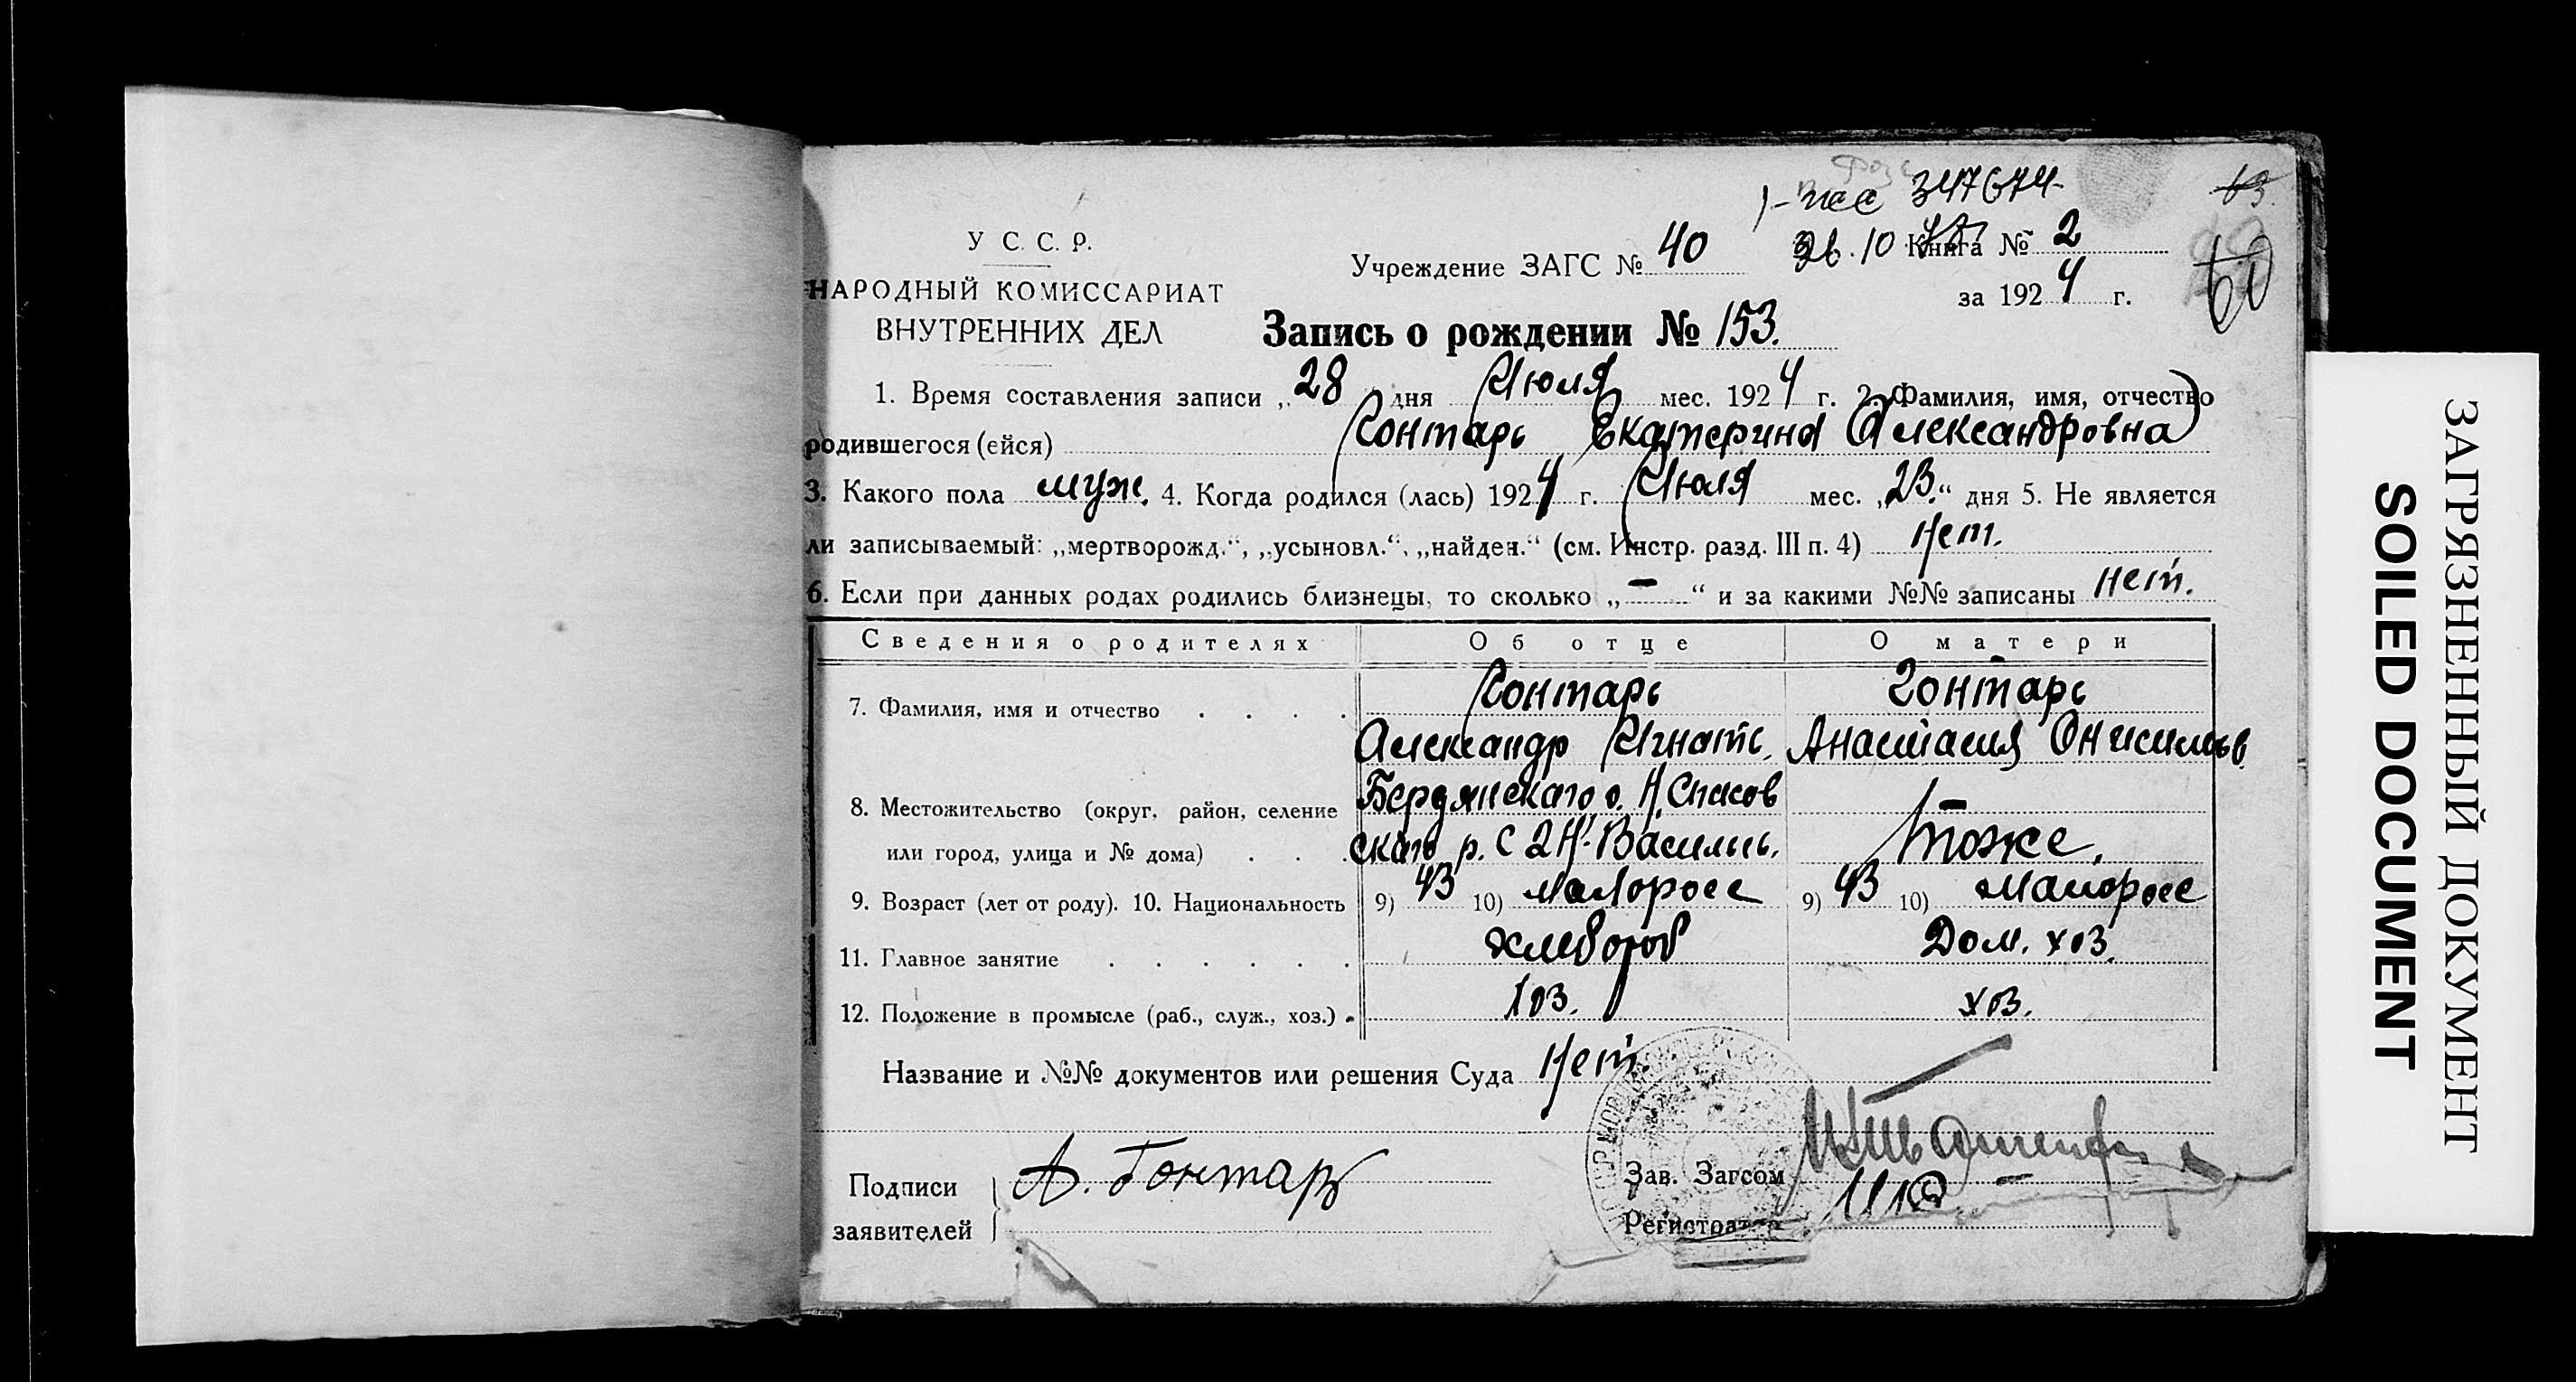 1-пас 347674-
63.
У. С. С. Р.
Учреждение ЗАГС № 40 26.10 Книга № 2
60
НАРОДНЫЙ КОМИССАРИАТ
за 1924 г.
ВНУТРЕННИХ ДЕЛ
Запись о рождении № 153.
1. Время составления записи „28 дня Июля мес. 1924 г. 2. Фамилия, имя, отчество
родившегося (ейся) Гонтарь Екатерина Александровна
3. Какого пола муж. 4. Когда родился (лась) 1924 г. Июля мес. „23.“ дня 5. Не является
ли записываемый: „мертворожд.“, „усыновл.“, „найден.“ (см. Инстр. разд. III п. 4) Нет.
6. Если при данных родах родились близнецы, то сколько „-“ и за какими №№ записаны нет.
Сведения о родителях Об отце О матери
7. Фамилия, имя и отчество . . . . Гонтарь Гонтарь
Александр Игнать. Анастасия
8. Местожительство (округ, район, селение Бердянскаго о. Н. Спасов
или город, улица и № дома) . . . скаго р. С 2 Н-Василь. тоже.
9. Возраст (лет от роду). 10. Национальность 9) 43 10) малоросс 9) 43 10) малоросс
11. Главное занятие . . . . . . хлебороб Дом. хоз.
12. Положение в промысле (раб., служ., хоз.) . хоз. хоз.
Название и №№ документов или решения Суда Нет.
Подписи
заявителей
А. Гонтарь
Зав. Загсом
Регистратор
ЗАГРЯЗНЕННЫЙ ДОКУМЕНТ
SOILED DOCUMENT